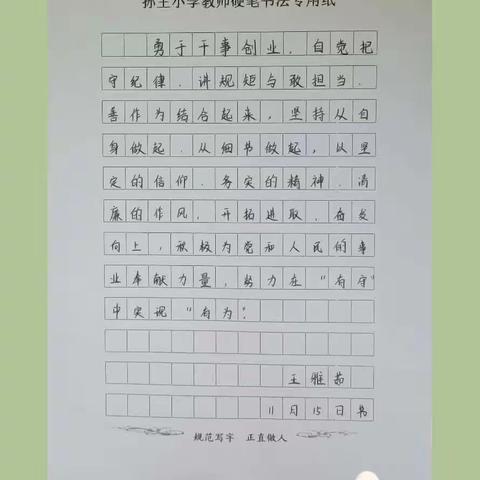 孙王小学教师硬笔书法专用纸
勇于干事创业、自觉把
守纪律、讲规矩与敢担当、
善作为结合起来，坚持从自
身做起、从细节做起，以坚
定的信仰、务实的精神、清
廉的作风，开拓进取、奋发
向上，积极为党和人民的事
业奉献力量，努力在“有守”
中实现“有为”。
王雅茹
11月15日书
规范写字 正直做人